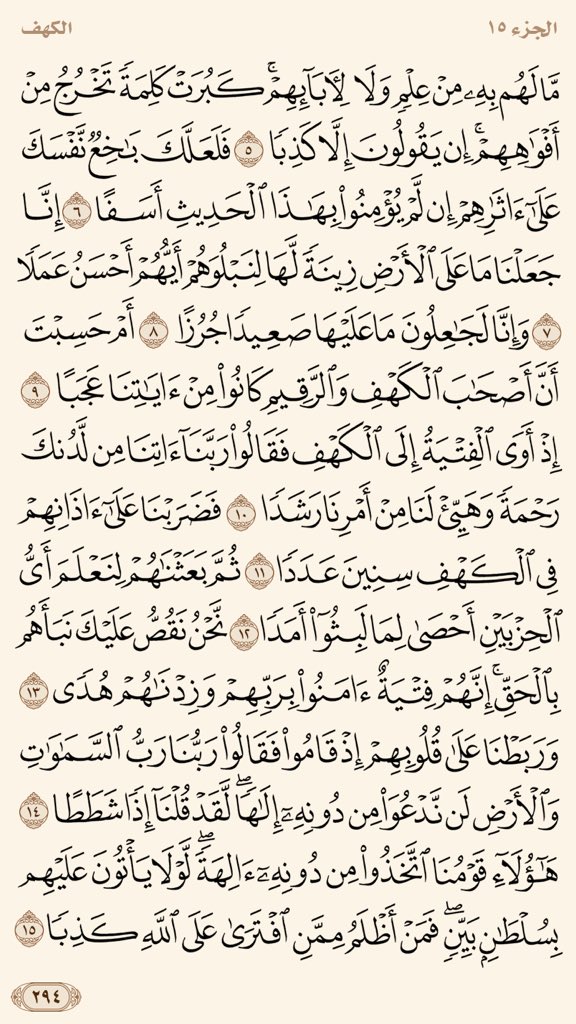 الجزء ١٥
الكهف
مَّا لَهُم بِهِۦ مِنْ عِلْمٍ وَلَا لِأٓبَآئِهِمْۚ كَبُرَتْ كَلِمَةً تَخْرُجُ مِنْ
أَفْوَٰهِهِمْۚ إِن يَقُولُونَ إِلَّا كَذِبًا ٥ فَلَعَلَّكَ بَٰخِعٌ نَّفْسَكَ
عَلَىٰٓ ءَاثَٰرِهِمْ إِن لَّمْ يُؤْمِنُوا۟ بِهَٰذَا ٱلْحَدِيثِ أَسَفًا ٦ إِنَّا
جَعَلْنَا مَا عَلَى ٱلْأَرْضِ زِينَةً لَّهَا لِنَبْلُوَهُمْ أَيُّهُمْ أَحْسَنُ عَمَلًا
٧ وَإِنَّا لَجَٰعِلُونَ مَا عَلَيْهَا صَعِيدًا جُرُزًا ٨ أَمْ حَسِبْتَ
أَنَّ أَصْحَٰبَ ٱلْكَهْفِ وَٱلرَّقِيمِ كَانُوا۟ مِنْ ءَايَٰتِنَا عَجَبًا ٩
إِذْ أَوَى ٱلْفِتْيَةُ إِلَى ٱلْكَهْفِ فَقَالُوا۟ رَبَّنَآ ءَاتِنَا مِن لَّدُنكَ
رَحْمَةً وَهَيِّئْ لَنَا مِنْ أَمْرِنَا رَشَدًا ١٠ فَضَرَبْنَا عَلَىٰٓ ءَاذَانِهِمْ
فِى ٱلْكَهْفِ سِنِينَ عَدَدًا ١١ ثُمَّ بَعَثْنَٰهُمْ لِنَعْلَمَ أَىُّ
ٱلْحِزْبَيْنِ أَحْصَىٰ لِمَا لَبِثُوٓا۟ أَمَدًا ١٢ نَّحْنُ نَقُصُّ عَلَيْكَ نَبَأَهُم
بِٱلْحَقِّۚ إِنَّهُمْ فِتْيَةٌ ءَامَنُوا۟ بِرَبِّهِمْ وَزِدْنَٰهُمْ هُدًى ١٣
وَرَبَطْنَا عَلَىٰ قُلُوبِهِمْ إِذْ قَامُوا۟ فَقَالُوا۟ رَبُّنَا رَبُّ ٱلسَّمَٰوَٰتِ
وَٱلْأَرْضِ لَن نَّدْعُوَا۟ مِن دُونِهِۦٓ إِلَٰهًاۖ لَّقَدْ قُلْنَآ إِذًا شَطَطًا ١٤
هَٰٓؤُلَآءِ قَوْمُنَا ٱتَّخَذُوا۟ مِن دُونِهِۦٓ ءَالِهَةًۖ لَّوْلَا يَأْتُونَ عَلَيْهِم
بِسُلْطَٰنٍۭ بَيِّنٍۖ فَمَنْ أَظْلَمُ مِمَّنِ ٱفْتَرَىٰ عَلَى ٱللَّهِ كَذِبًا ١٥
٢٩٤